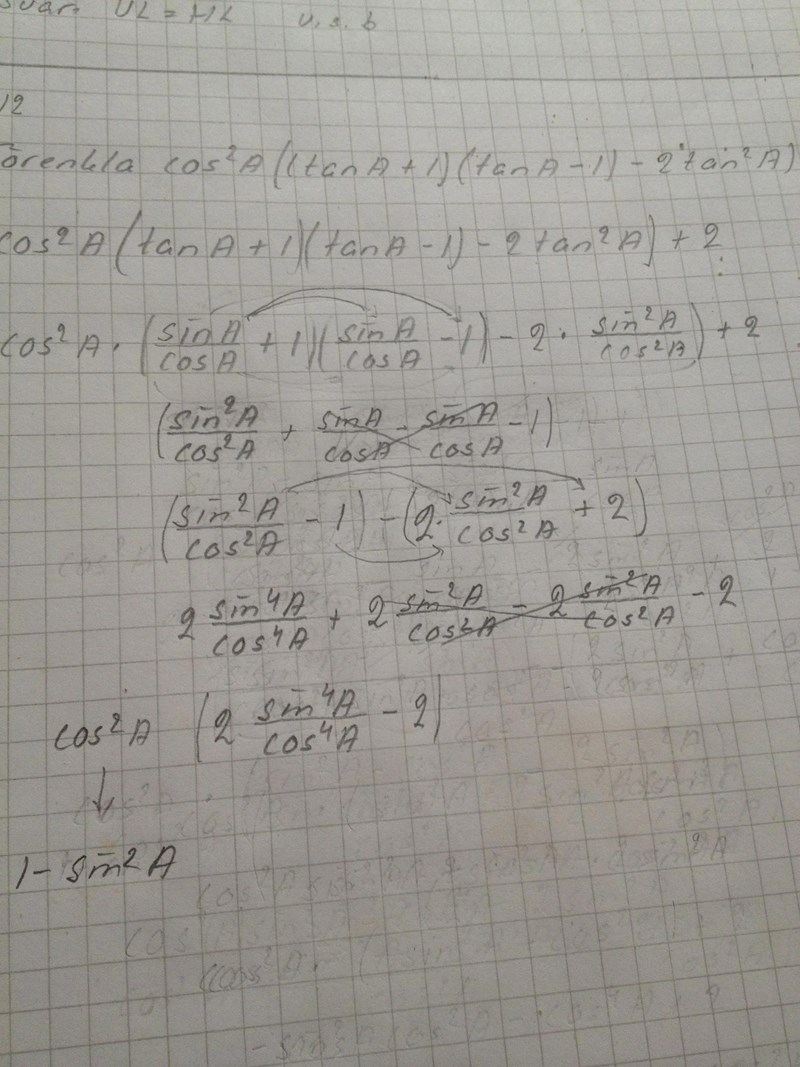 VL = HL v.s.b
12
Förenkla cos²A((tanA+1)(tanA-1)-2tan²A)
cos²A(tanA+1)(tanA-1)-2tan²A)+2
cos²A·(sinA/cosA+1)(sinA/cosA-1)-2·sin²A/cos²A)+2
(sin²A/cos²A+sinA/cosA-sinA/cosA-1)
(sin²A/cos²A-1)-(2·sin²A/cos²A+2)
2 sin⁴A/cos⁴A+2 sin²A/cos²A-2 sin²A/cos²A-2
cos²A (2 sin⁴A/cos⁴A-2)
↓
1-sin²A